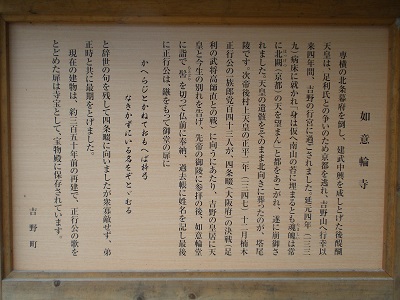 如意輪寺
専横の北条幕府を倒し、建武中興を成しとげた後醍醐
天皇は、足利氏との争いのため京都を逃れ、吉野山へ行幸以
来四年間、吉野の行宮に過ごされました。延元四年（一三三
九）病床に就かれ「身は仮へ南山の苔に埋まるとも魂魄は常
に北闕（京都）の天を望まん」と都をあこがれ、遂に崩御さ
れました。天皇の遺骸をそのまま北向きに葬ったのが、塔尾
陵です。次帝後村上天皇の正平二年（一三四七）十二月楠木
正行公の一族郎党百四十三人が、四条畷（大阪府）の決戦（足
利の武将高師直との戦）に向うにあたり、吉野の皇居に天
皇と今生の別れを告げ、先帝の御陵に参拝の後、如意輪堂
に詣で、髻を切って仏前に奉納、過去帳に姓名を記し最後
に正行公は鏃をもって御堂の扉に
かへらじとかねておもへば梓弓
なきかずにいる名をぞとゞむる
と辞世の句を残して四条畷に向いましたが衆寡敵せず、弟
正時と共に最期をとげました。
現在の建物は、約三百五十年前の再建で、正行公の歌を
とどめた扉は寺宝として、宝物殿に保存されています。
吉野町